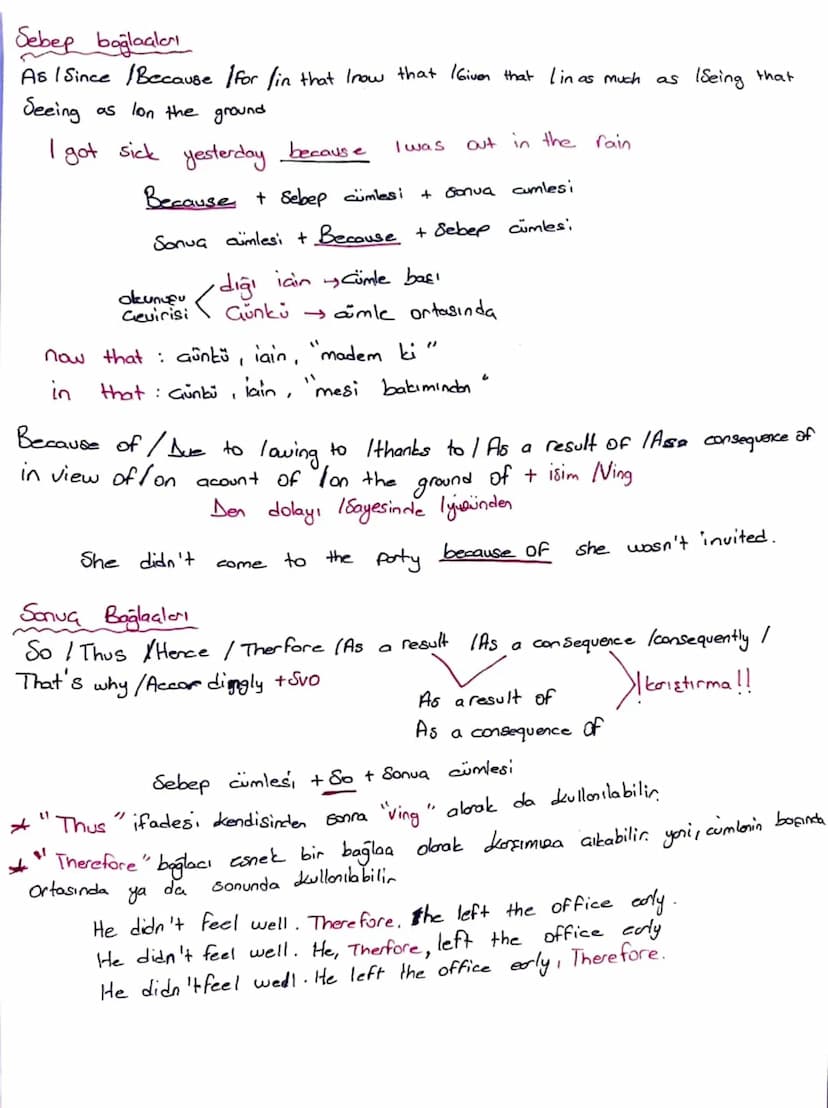 Sebep bağlaçları
As / Since / Because / for / in that / now that / Given that / in as much as / Seing that
Seeing as / on the ground
I got sick yesterday because I was out in the rain
Because + Sebep cümlesi + Sonuç cümlesi
Sonuç cümlesi + Because + Sebep cümlesi
okunuşu
çevirisi
dığı için → Cümle başı
Çünkü → cümle ortasında
now that : çünkü, için, "madem ki"
in that : çünkü, için, "mesi bakımından"
Because of / Due to / owing to / thanks to / As a result of / As a consequence of
in view of / on acount of / on the ground of + isim / Ving
Den dolayı / Sayesinde / yüzünden
She didn't come to the party because of she wasn't invited.
Sonuç Bağlaçları
So / Thus / Hence / Therfore / As a result / As a consequence / consequently /
That's why / Accordingly + SVO
As a result of
As a consequence of
karıştırma!!
Sebep cümlesi + So + Sonuç cümlesi
* "Thus" ifadesi kendisinden sonra "Ving" alarak da kullanılabilir.
* "Therefore" bağlacı esnek bir bağlaç olarak karşımıza çıkabilir. yani, cümlenin başında
ortasında ya da sonunda kullanılabilir
He didn't feel well. Therefore, he left the office early.
He didn't feel well. He, Therfore, left the office early
He didn't feel well. He left the office early, Therefore.